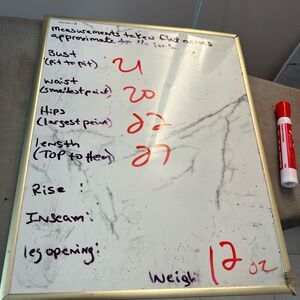 measurements taken flat across
approximate to ½ inch
Bust
(pit to pit) 21
waist
(smallest point) 20
Hips
(largest point) 22
length
(TOP to Hem) 27
Rise:
Inseam:
leg opening:
Weigh 12 oz